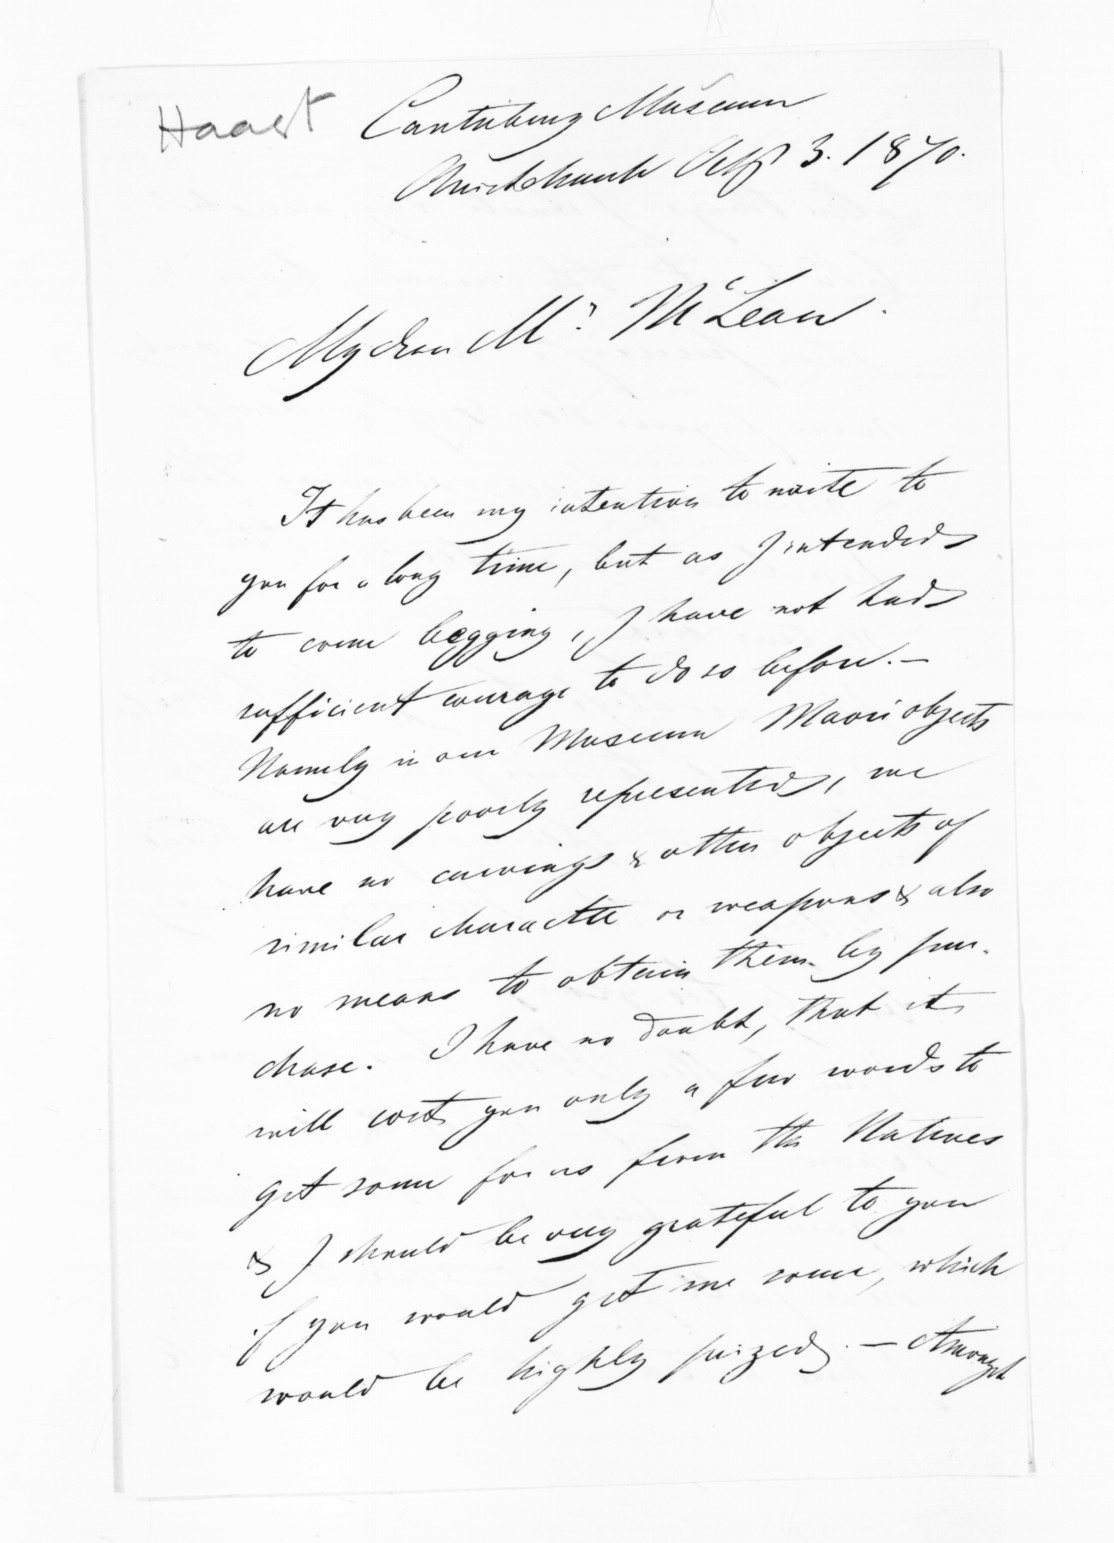 Haast
Canterbury Museum
Christchurch Octbr 3. 1870.
My dear Mr. McLean.
It has been my intention to write to
you for a long time, but as I intended
to come begging, I have not had
sufficient courage to do so before. —
Namely in our Museum Maori objects
are very poorly represented, we
have no carvings & other objects of
similar character or weapons & also
no means to obtain them by pur-
chase. I have no doubt, that it
will cost you only a few words to
get some for us from the Natives
& I should be very grateful to you
if you would get me some, which
would be highly prized. — Amongst